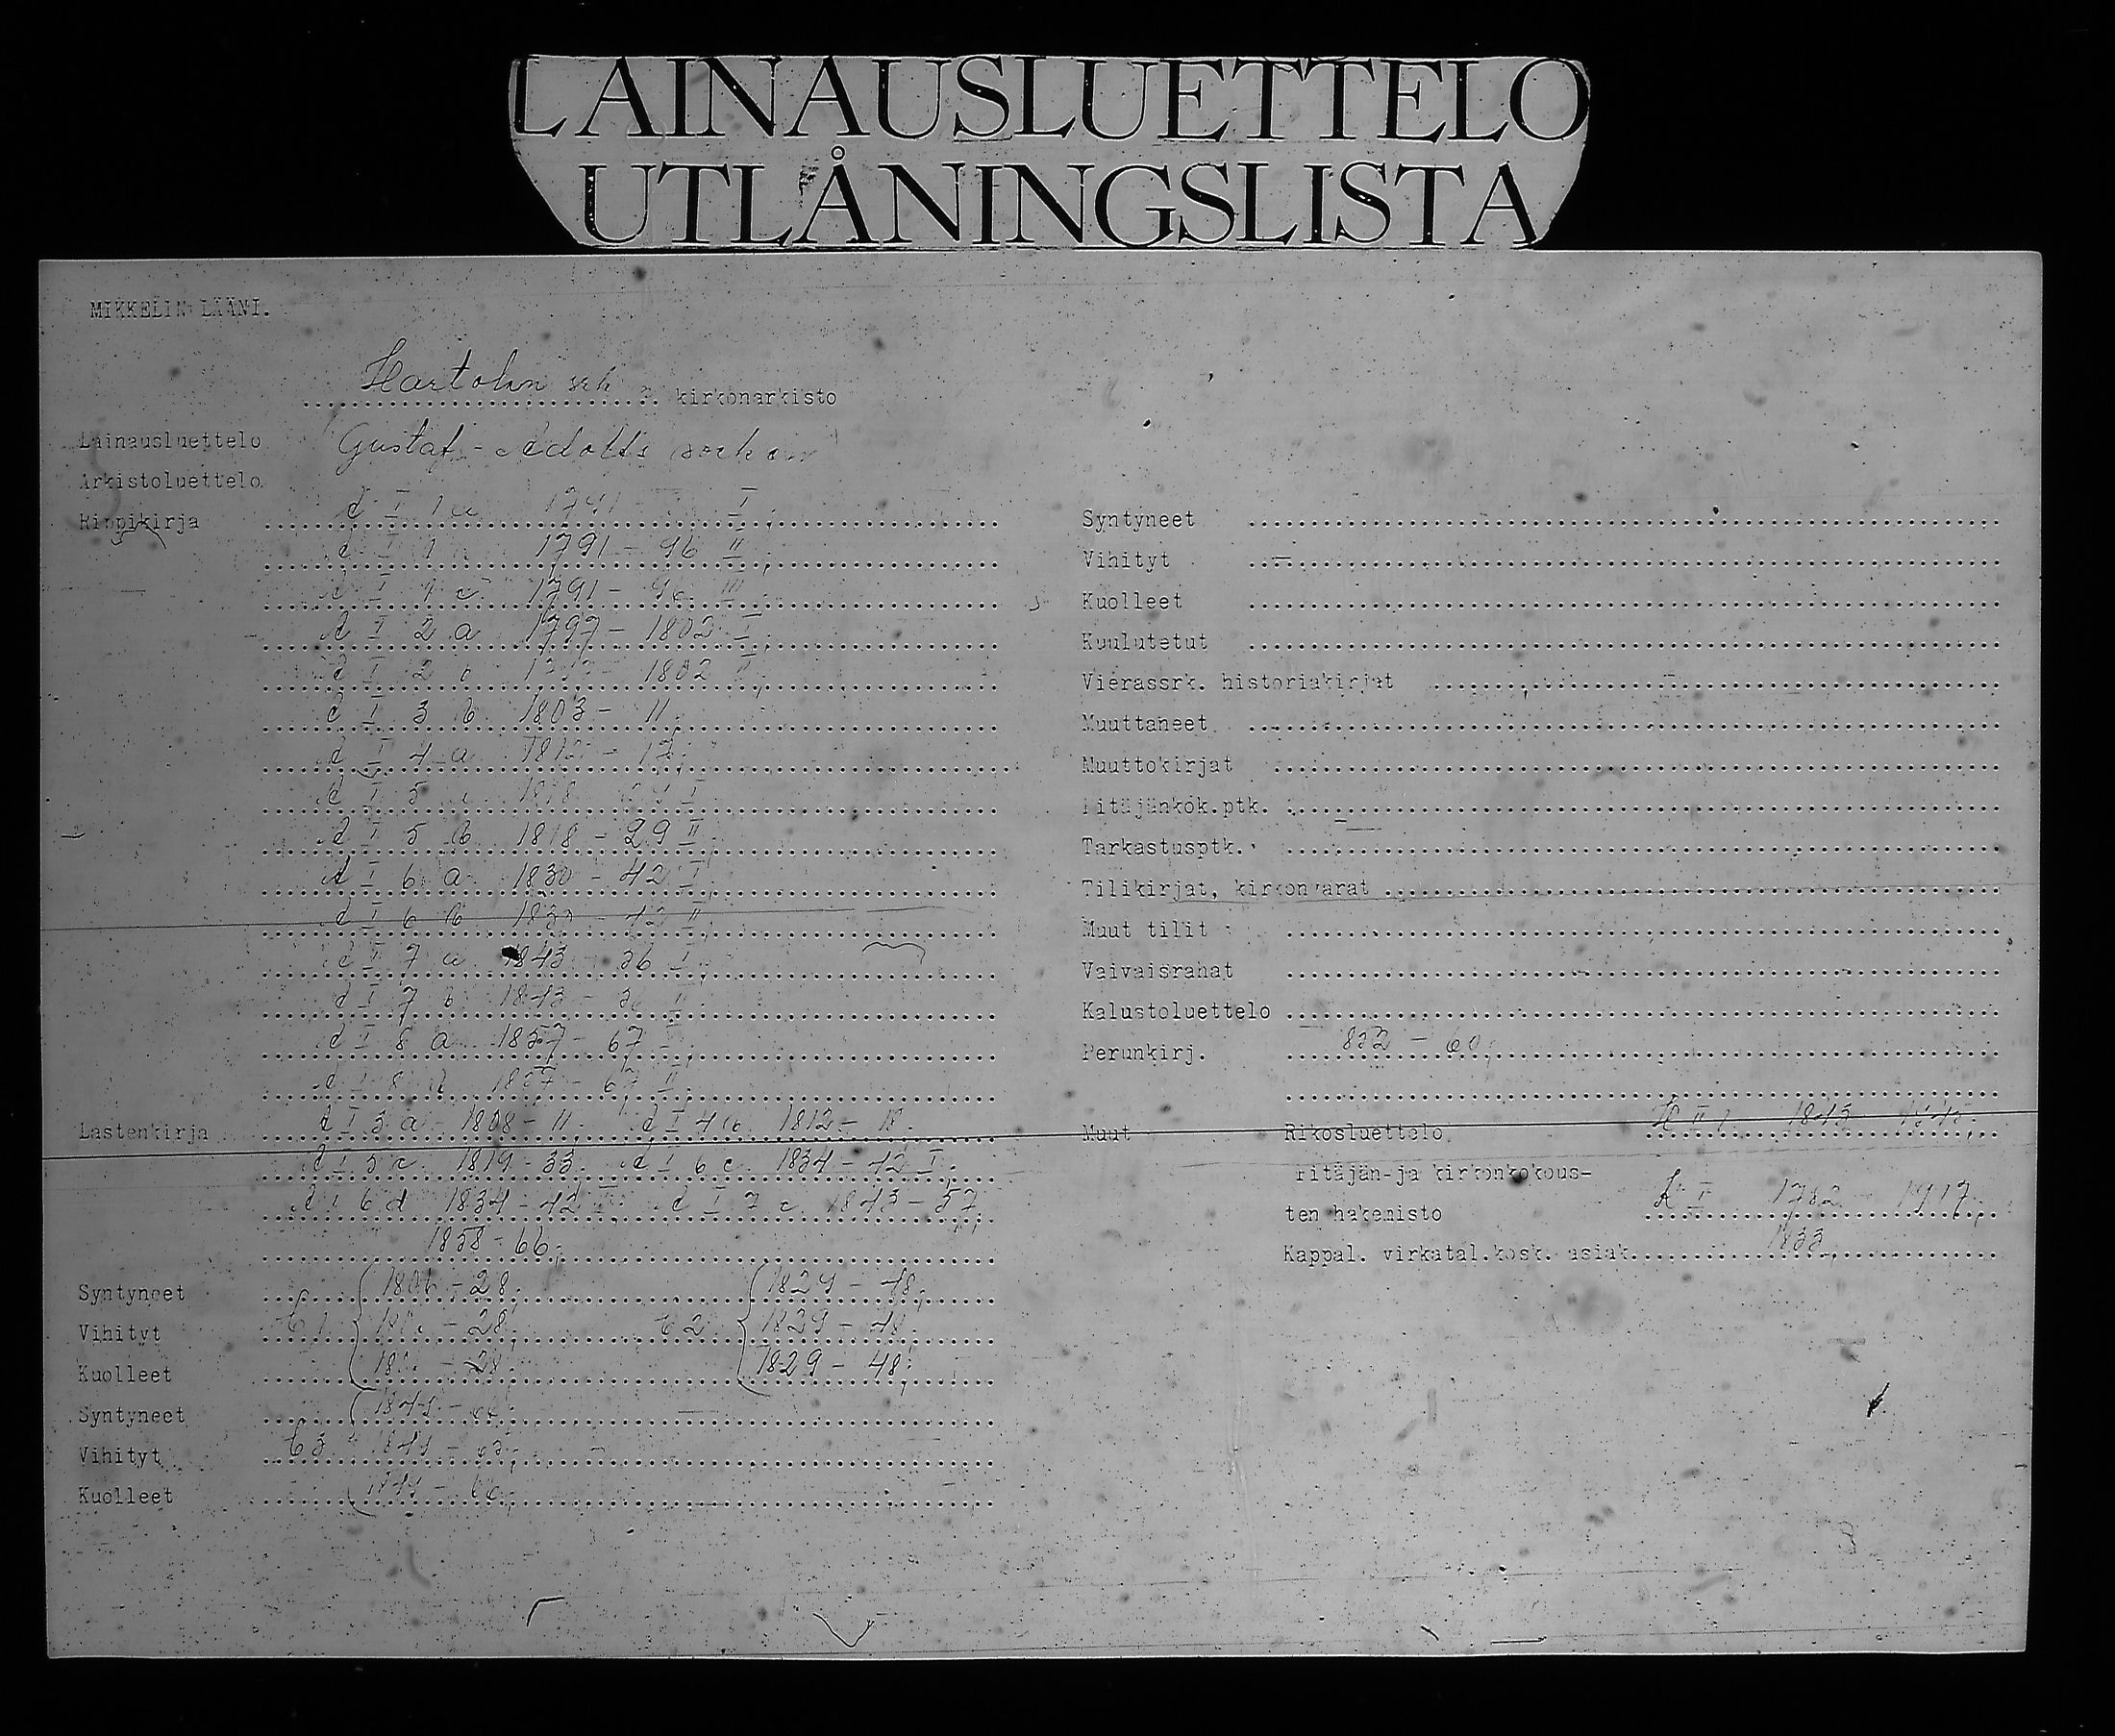 LAINAUSLUETTELO
UTLÅNINGSLISTA
MIKKELIN LÄÄNI.
Hartolan srk n. kirkonarkisto
Lainausluettelo Gustaf-Adolfs socken
Arkistoluettelo
Rippikirja d I 1 a 1791 - I
d I 1 1791 - 96 II;
d I 1 c 1791 - 96 III;
d I 2 a 1797 - 1802 I;
d I 2 1802 II;
d I 3 b 1803 - 11;
d I 4 a 1812 - 17;
d I 5 1818 I
d I 5 b 1818 - 29 II;
d I 6 a 1830 - 42 I;
d I 6 b 1830 - 42 II;
d I 7 a 1843 - 56 I;
d I 7 b 1843 - 56 II;
d I 8 a 1857 - 67 I;
d I 8 b 1857 - 67 II;
Lastenkirja d I 3 a 1808 - 11; d I 4 b 1812 - 18.
d I 5 c 1819 - 33; d I 6 c 1834 - 42 I;
d I 6 d 1834 - 42 II d I 7 c 1843 - 57;
1858 - 66;
Syntyneet 1806 - 28; 1829 - 48;
Vihityt C 1 - 28; C 2 1829 - 48;
Kuolleet - 28; 1829 - 48;
Syntyneet 1849 -
Vihityt C 3 1849 -
Kuolleet 1849 -
Syntyneet
Vihityt
Kuolleet
Kuulutetut
Vierassrk. historiakirjat
Muuttaneet
Muuttokirjat
Pitäjänkok.ptk.
Tarkastusptk.
Tilikirjat, kirkonvarat
Muut tilit
Vaivaisrahat
Kalustoluettelo
Perunkirj. - 60;
Muut Rikosluettelo II 1843
Pitäjän-ja kirkonkokous-
ten hakemisto K I 1782 - 1917;
Kappal. virkatal.kosk. asiak. 1833;